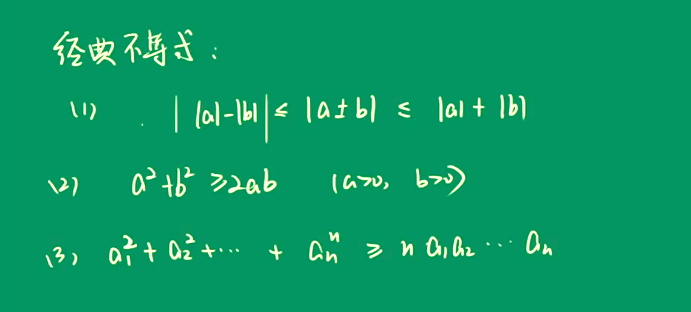 经典不等式：
(1) . ||a|-|b|| ≤ |a±b| ≤ |a|+|b|
(2) a²+b² ≥2ab (a>0, b>0)
(3) a₁²+a₂²+⋯+aₙⁿ ≥ n a₁a₂⋯aₙ